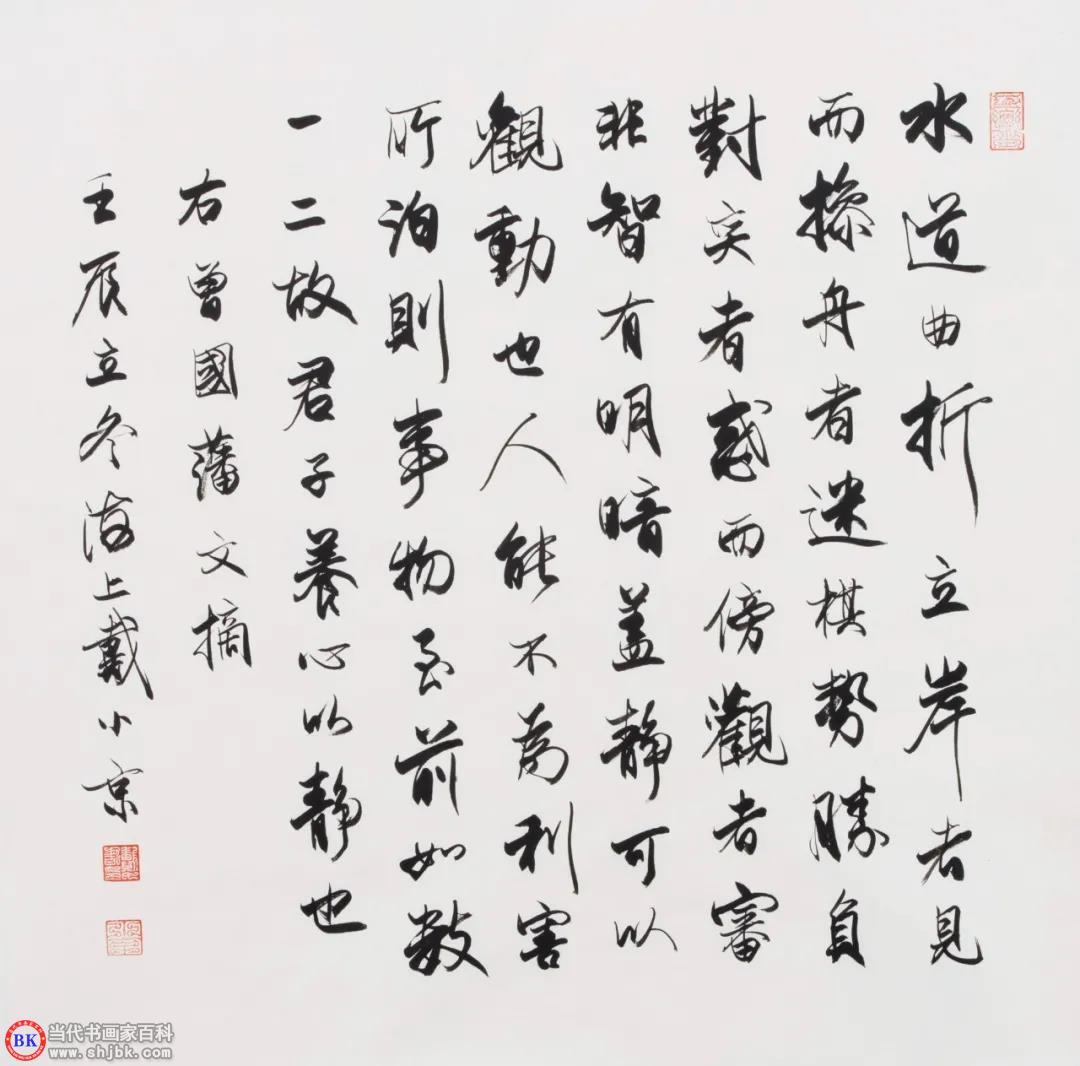 水道曲折立岸者見
而操舟者迷棋勢勝負
對奕者惑而傍觀者審
非智有明暗蓋靜可以
觀動也人能不為利害
所泊則事物至前如數
一二故君子養心以靜也
右曾國藩文摘
壬辰立冬海上戴小京
BK 当代书画家百科
www.shjbk.com